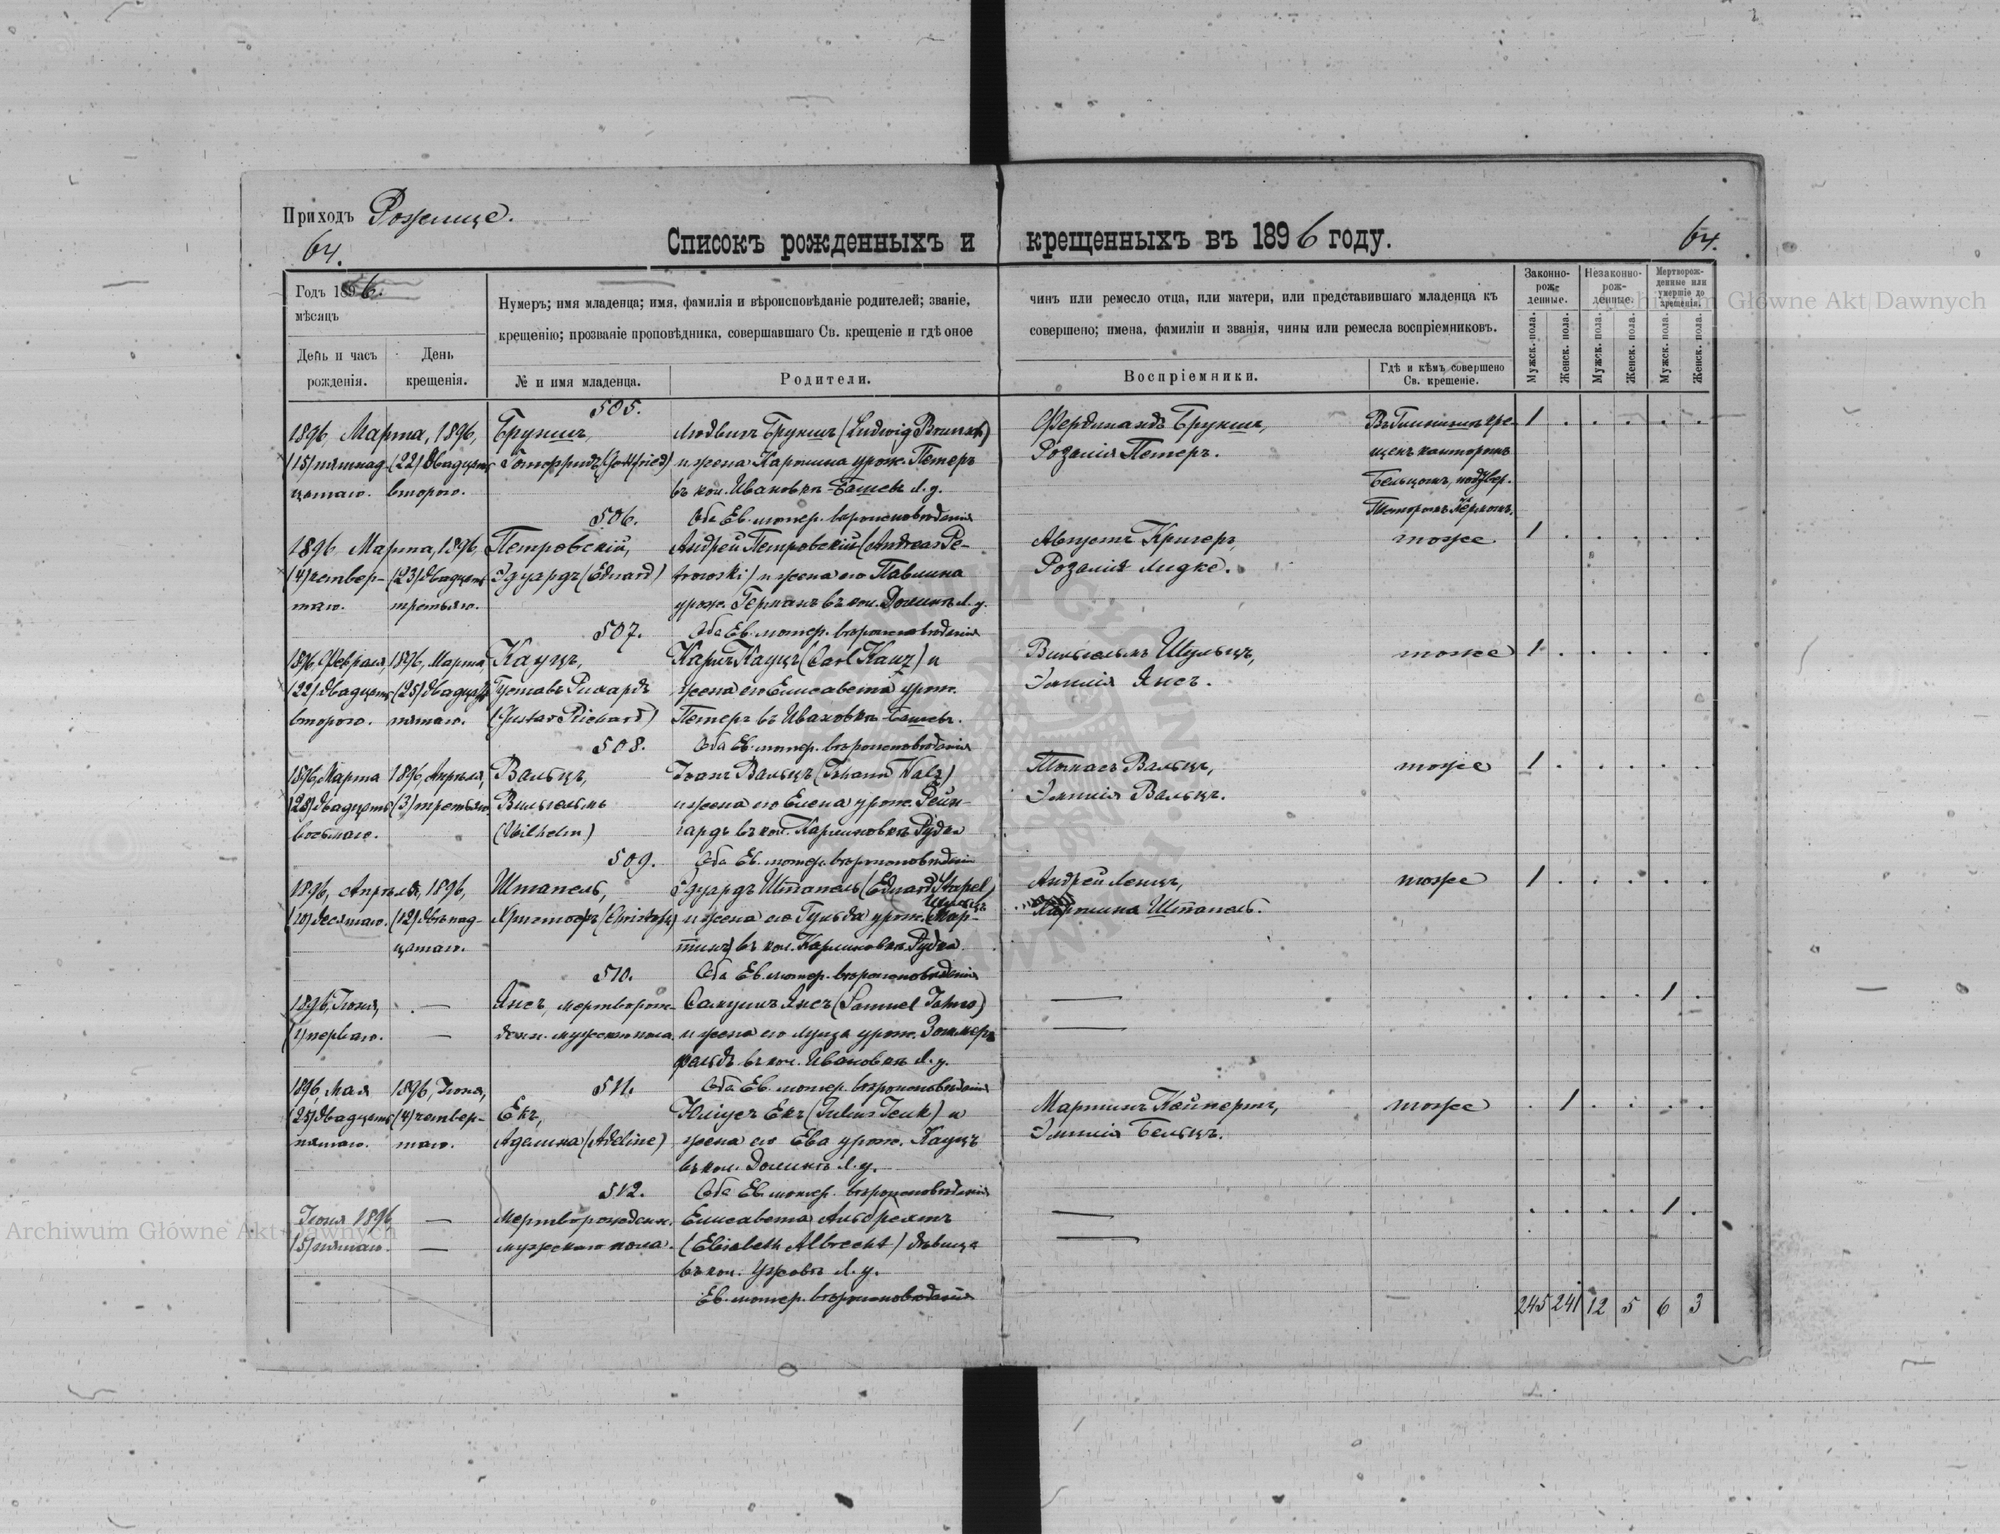 Приходъ Рожище.
64.
Списокъ рожденныхъ и крещенныхъ въ 1896 году.
64.
Годъ 1896.
мѣсяцъ
День и часъ рожденія.
День крещенія.
Нумеръ; имя младенца; имя, фамилія и вѣроисповѣданіе родителей; званіе, чинъ или ремесло отца, или матери, или представившаго младенца къ
крещенію; прозваніе проповѣдника, совершавшаго Св. крещеніе и гдѣ оное совершено; имена, фамиліи и званія, чины или ремесла воспріемниковъ.
№ и имя младенца.
Родители.
Воспріемники.
Гдѣ и кѣмъ совершено Св. крещеніе.
Законно-рожденные.
Незаконно-рожденные.
Мертворожденные или умершіе до крещенія.
Мужск. пола.
Женск. пола.
Мужск. пола.
Женск. пола.
Мужск. пола.
Женск. пола.
505.
1896 Марта, 1896, Брукшъ, Людвигъ Брукшъ (Ludwig Bruksch) Фердинандъ Брукшъ, 1
(15) пятнад- (22) двадцать Готфридъ (Gottfried) и жена Каролина урож. Петеръ Розалія Петеръ. щенъ канторомъ
цатаго. второго. въ кол. Ивановкѣ-Башевѣ Л. у. Бельцомъ, подтвер.
506. Оба Ев. лютер. вѣроисповѣданія Пасторомъ Керномъ.
1896 Марта, 1896, Петровскій, Андрей Петровскій (Andreas Pe- Августъ Кригеръ, тоже. 1
(4) четвер- (23) двадцать Эдуардъ (Eduard) trowski) и жена его Павлина Розалія Лидке.
таго. третьяго. урож. Германъ въ кол. Долинкѣ Л. у.
507. Оба Ев. лютер. вѣроисповѣданія
1896, Февраля, 1896, Марта Кауцъ, Карлъ Кауцъ (Carl Kauz) и Вильгельмъ Шульцъ, тоже 1
(22) двадцать (25) двадцать Густавъ Рихардъ жена его Елисавета урож. Эмилія Янсъ.
второго. пятаго. (Gustav Richard) Петеръ въ Ивановкѣ-Башевѣ.
508. Оба Ев. лютер. вѣроисповѣданія
1896, Марта 1896 Апрѣля, Вальцъ, Іоганъ Вальцъ (Johann Walz) Томасъ Вальцъ, тоже 1
(28) двадцать (3) третьяго. Вильгельмъ и жена его Елена урож. Рейн- Эмилія Вальцъ.
восьмаго. (Wilhelm) гардъ въ кол. Каролиновкѣ Рудка
509. Оба Ев. лютер. вѣроисповѣданія
1896, Апрѣля, 1896, Штапель, Эдуардъ Штапель (Eduard Stapel) Андрей Ленцъ, тоже 1
(10) десятаго. (12) двѣнад- Христофъ (Christoph) и жена его Гульда урож. Мар- Каролина Штапель.
цатаго. тинъ) въ кол. Каролиновкѣ Рудка
510. Оба Ев. лютер. вѣроисповѣданія
1896, Іюня, — Янсъ мертворож- Самуилъ Янсъ (Samuel Jahns) — 1
(1) перваго. — денн. мужского пола. и жена его Луиза урож. Зоммер- —
фельдъ въ кол. Ивановкѣ Л. у.
1896, Мая 1896, Іюня, 511. Оба Ев. лютер. вѣроисповѣданія
(25) двадцать (4) четвер- Екъ, Юліусъ Екъ (Julius Jeuk) и Мартинъ Кейпертъ, тоже 1
пятаго. таго. Аделина (Adeline) жена его Ева урож. Кауцъ Эмилія Бельцъ.
въ кол. Долинкѣ Л. у.
512. Оба Ев. лютер. вѣроисповѣданія
Іюня 1896, — Мертворожденн. Елисавета Альбрехтъ — 1
(5) пятаго. — мужскаго пола. (Elisabeth Albrecht) дѣвица —
въ кол. Ужовѣ Л. у.
Ев. лютер. вѣроисповѣданія
245 241 12 5 6 3
Archiwum Główne Akt Dawnych
Archiwum Główne Akt Dawnych